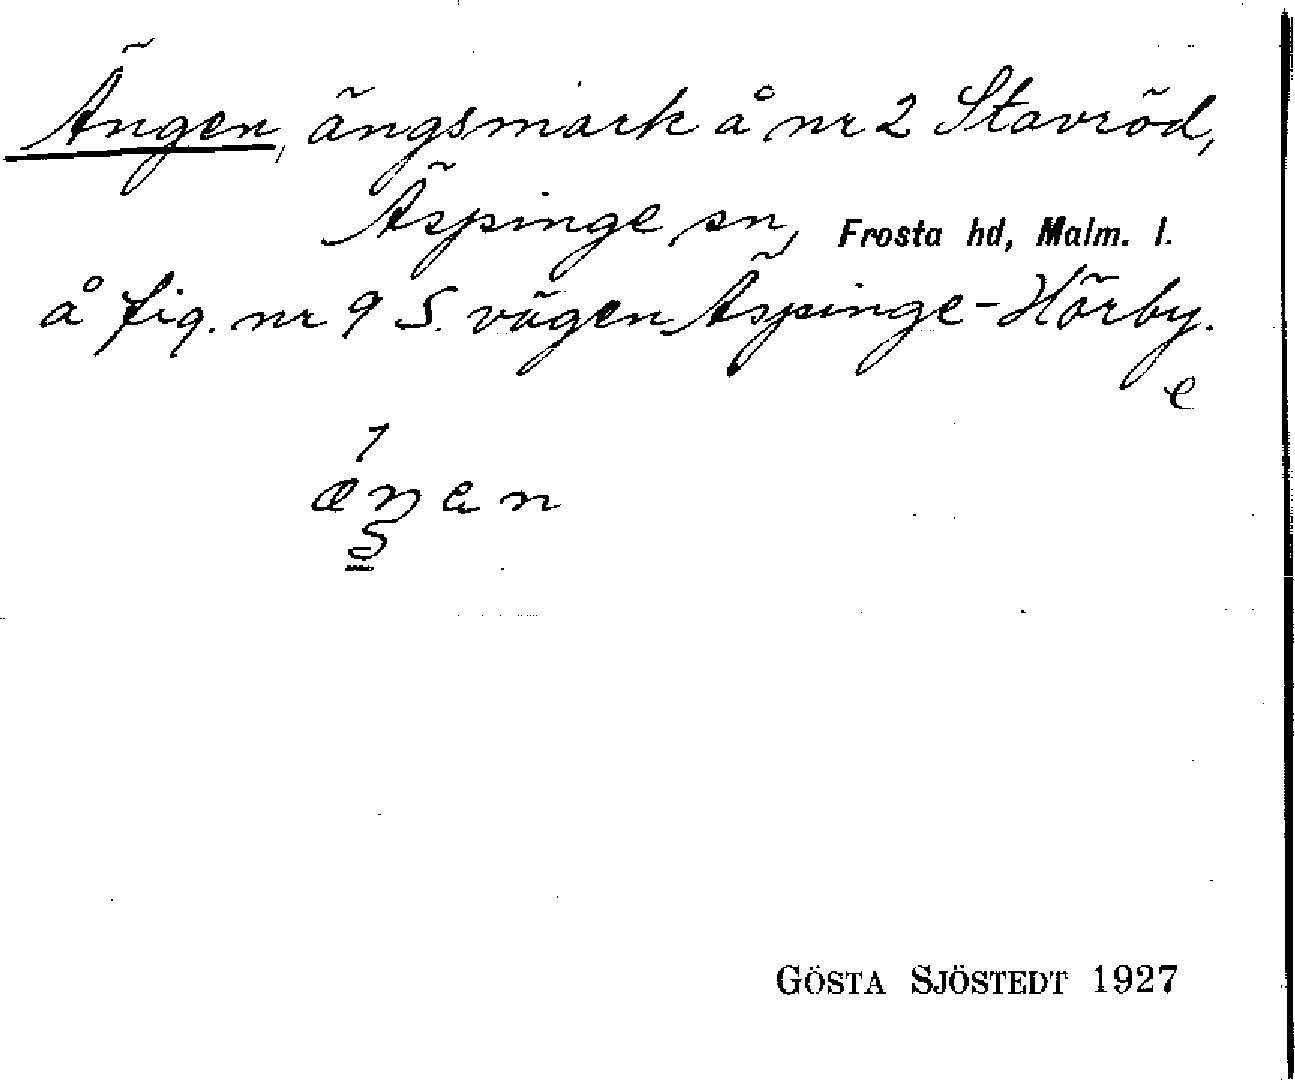 Ängen, ängsmark å nr 2 Stavröd,
Äspinge sn, Frosta hd, Malm. l.
å fig. nr 9 S. vägen Äspinge-Hörby.
e
GÖSTA SJÖSTEDT 1927